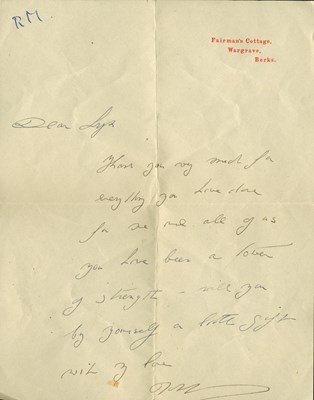 RM.
Fairman's Cottage,
Wargrave,
Berks.
Dear
Thank you very much for
everything you have done
for me and all of us
you have been a tower
of strength - will you
buy yourself a little gift
with my love